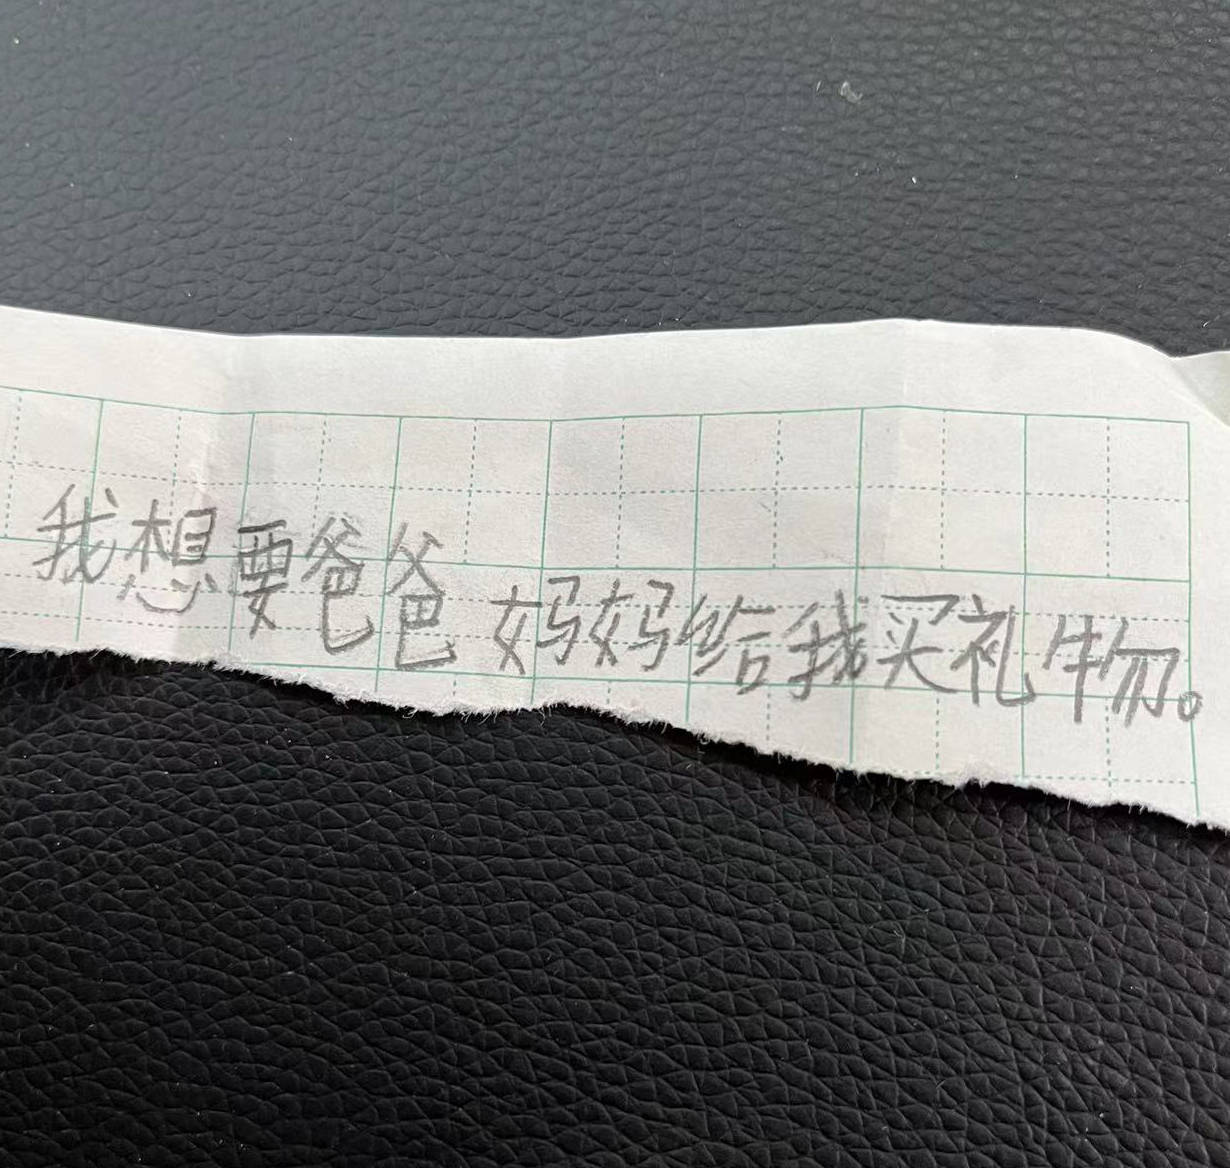 我想要爸爸妈妈给我买礼物。